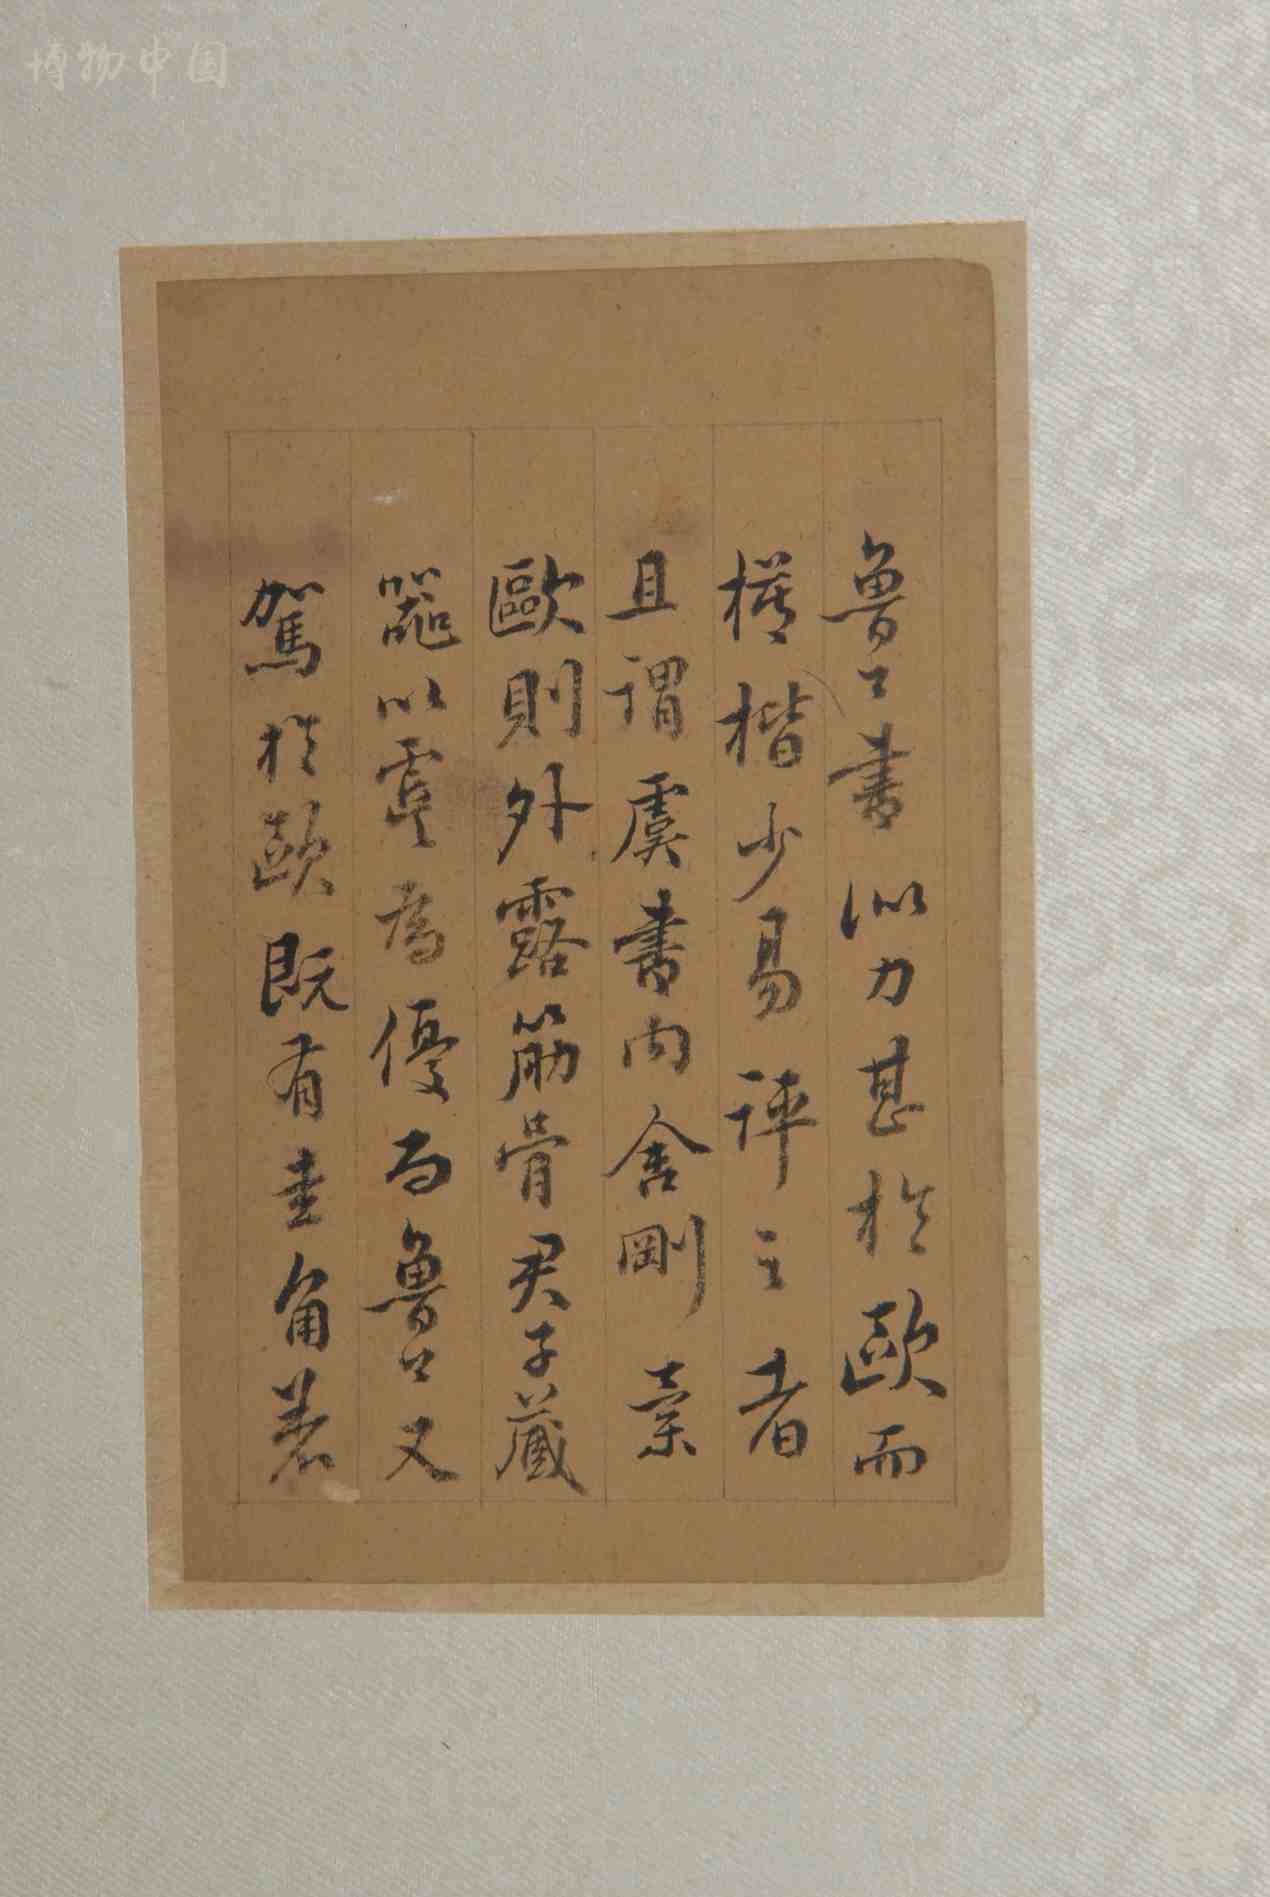 博物中国
魯公書似力甚於歐而
模楷少易評之者
且謂虞書內含剛柔
歐則外露筋骨君子藏
器以虞為優而魯公又
駕於歐既有圭角著